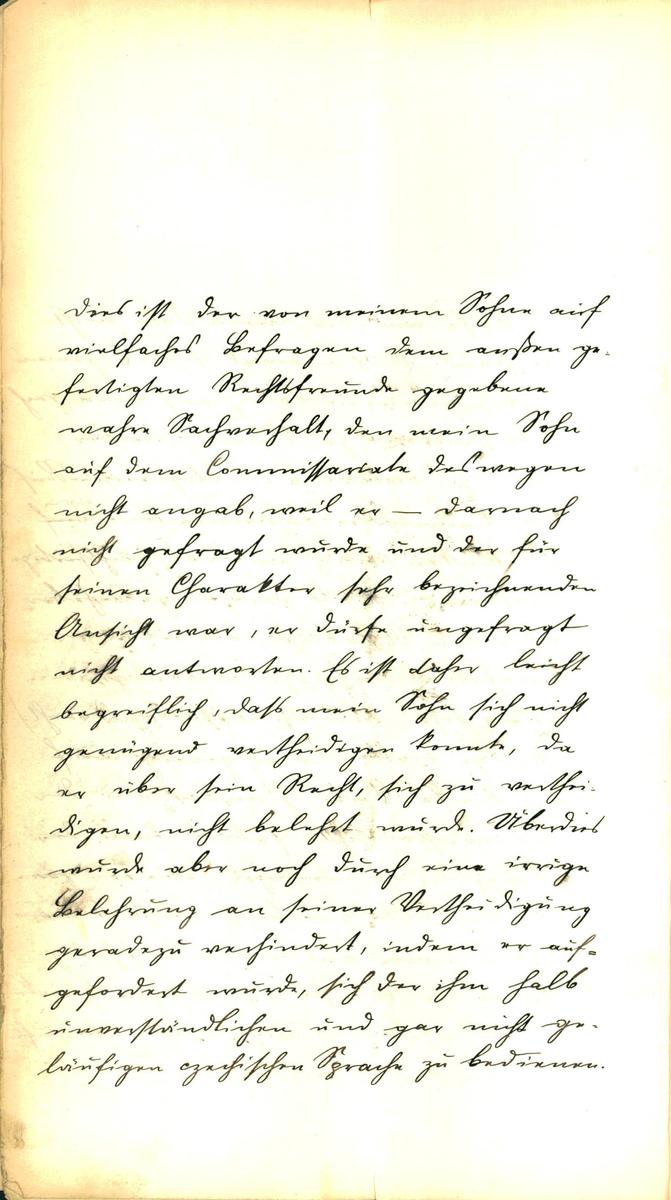 Dies ist der von meinem Sohne auf
vielfaches Befragen dem außen ge-
fertigten Rechtsfreunde gegebene
wahre Sachverhalt, den mein Sohn
auf dem Commissariate deswegen
nicht angab, weil er — darnach
nicht gefragt wurde und der für
seinen Charakter sehr bezeichnenden
Ansicht war, er dürfe ungefragt
nicht antworten. Es ist daher leicht
begreiflich, dass mein Sohn sich nicht
genügend vertheidigen konnte, da
er über sein Recht, sich zu verthei-
digen, nicht belehrt wurde. Überdies
wurde aber noch durch eine irrige
Belehrung an seiner Vertheidigung
geradezu verhindert, indem er auf-
gefordert wurde, sich der ihm halb
unverständlichen und gar nicht ge-
läufigen czechischen Sprache zu bedienen.